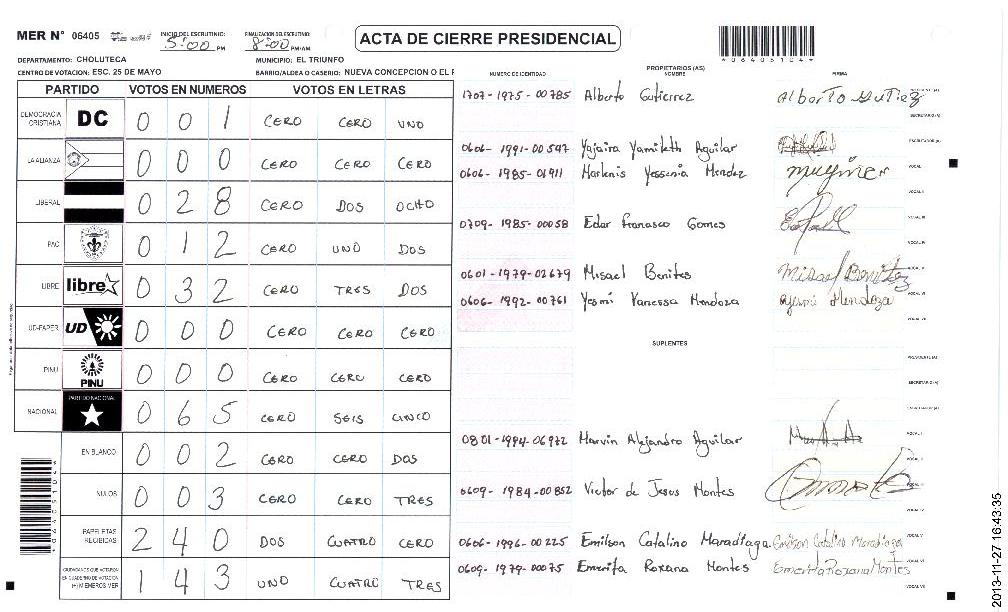 MER N° 06405 INICIO DEL ESCRUTINIO: 5:00 PM FINALIZACION DEL ESCRUTINIO: 8:00 PM/AM
ACTA DE CIERRE PRESIDENCIAL
*06405104*
DEPARTAMENTO: CHOLUTECA MUNICIPIO: EL TRIUNFO
CENTRO DE VOTACION: ESC. 25 DE MAYO BARRIO/ALDEA O CASERIO: NUEVA CONCEPCION O EL F
PARTIDO VOTOS EN NUMEROS VOTOS EN LETRAS
DEMOCRACIA CRISTIANA DC 0 0 1 CERO CERO UNO
LA ALIANZA 0 0 0 CERO CERO CERO
LIBERAL 0 2 8 CERO DOS OCHO
PAC 0 1 2 CERO UNO DOS
LIBRE libre 0 3 2 CERO TRES DOS
UD-FAPER UD 0 0 0 CERO CERO CERO
PINU PINU 0 0 0 CERO CERO CERO
NACIONAL PARTIDO NACIONAL 0 6 5 CERO SEIS CINCO
EN BLANCO 0 0 2 CERO CERO DOS
NULOS 0 0 3 CERO CERO TRES
PAPELETAS RECIBIDAS 2 4 0 DOS CUATRO CERO
CIUDADANOS QUE VOTARON EN CUADERNO DE VOTACION (+) MIEMBROS MER 1 4 3 UNO CUATRO TRES
*06405104*
NUMERO DE IDENTIDAD PROPIETARIOS (AS) NOMBRE FIRMA
1707-1975-00785 Alberto Gutierrez Alberto Gutiez
SECRETARIO (A)
0606-1991-00597 Ygiaira Yamileth Aguilar ESCRUTADOR (A)
0606-1985-01911 Marlenis Yessenia Mendez VOCAL I
VOCAL II
0709-1985-00058 Edar Francisco Gomes VOCAL III
VOCAL IV
0601-1979-02679 Misael Benites Misael Benitez
0606-1992-00761 Yesmi Vanessa Mendoza Yesmi Mendoza
VOCAL VII
SUPLENTES
PRESIDENTE (A)
SECRETARIO (A)
ESCRUTADOR (A)
0801-1984-06972 Marvin Alejandro Aguilar VOCAL I
VOCAL II
0609-1984-00852 Victor de Jesus Montes
VOCAL IV
0606-1996-00225 Emilson Catalino Maradiaga Emilson Catalino Maradiaga VOCAL V
0609-1979-00075 Emerita Roxana Montes Emerita Roxana Montes
VOCAL VII
2013-11-27 16:43:35